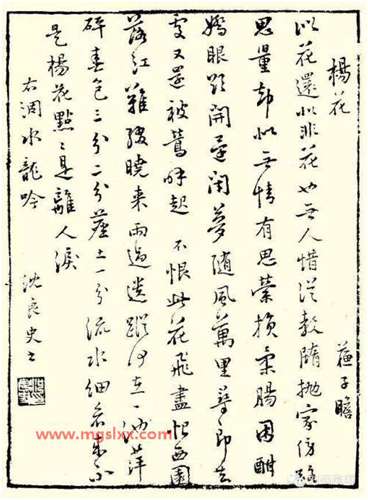 楊花
蘇子瞻
似花還似非花也无人惜從教隨拋家傍路
思量却似无情有思縈損柔腸困酣
嬌眼欲開還閉夢隨風萬里尋郎去
處又還被鶯呼起不恨此花飛盡恨西園
落紅難綴曉來雨過遺蹤何在一池萍
碎春色三分二分塵土一分流水細看來不
是楊花點〻是離人淚
右調水龍吟
沈良史
www.mgslxx.com